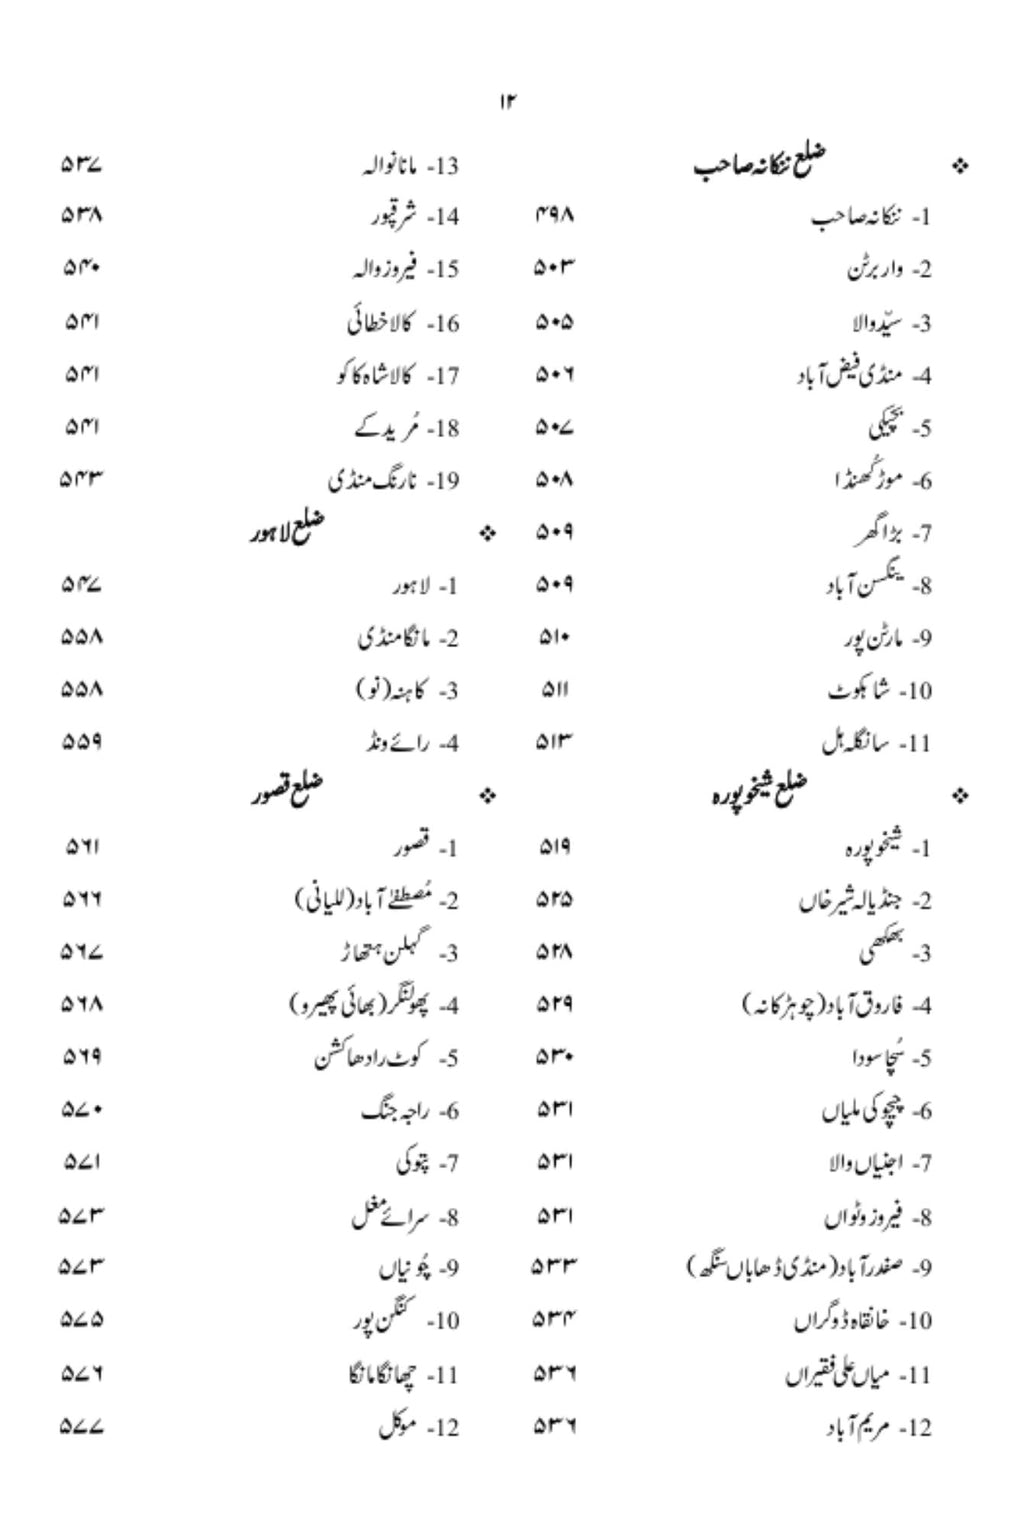 ۱۲
❖ ضلع ننکانہ صاحب
1- ننکانہ صاحب ۴۹۸
2- واربرٹن ۵۰۳
3- سیّدوالا ۵۰۵
4- منڈی فیض آباد ۵۰۶
5- بچیکی ۵۰۷
6- موڑ کُھنڈا ۵۰۸
7- بڑا گھر ۵۰۹
8- ینگسن آباد ۵۰۹
9- مارٹن پور ۵۱۰
10- شاہکوٹ ۵۱۱
11- سانگلہ ہل ۵۱۳
❖ ضلع شیخوپورہ
1- شیخوپورہ ۵۱۹
2- جنڈیالہ شیر خاں ۵۲۵
3- بھکھی ۵۲۸
4- فاروق آباد (چوہڑکانہ) ۵۲۹
5- سُچا سودا ۵۳۰
6- چیچو کی ملیاں ۵۳۱
7- اجنیاں والا ۵۳۱
8- فیروز وٹواں ۵۳۱
9- صفدرآباد (منڈی ڈھاباں سنگھ) ۵۳۳
10- خانقاہ ڈوگراں ۵۳۴
11- میاں علی فقیراں ۵۳۶
12- مریم آباد ۵۳۶
13- مانانوالہ ۵۳۷
14- شرقپور ۵۳۸
15- فیروز والہ ۵۴۰
16- کالا خطائی ۵۴۱
17- کالا شاہ کاکو ۵۴۱
18- مُریدکے ۵۴۱
19- نارنگ منڈی ۵۴۳
❖ ضلع لاہور
1- لاہور ۵۴۷
2- مانگا منڈی ۵۵۸
3- کاہنہ (نو) ۵۵۸
4- رائے ونڈ ۵۵۹
❖ ضلع قصور
1- قصور ۵۶۱
2- مُصطفےٰ آباد (للیانی) ۵۶۶
3- گہلن ہتھاڑ ۵۶۷
4- پھولنگر (بھائی پھیرو) ۵۶۸
5- کوٹ رادھا کشن ۵۶۹
6- راجہ جنگ ۵۷۰
7- پتوکی ۵۷۱
8- سرائے مغل ۵۷۳
9- چُونیاں ۵۷۳
10- کنگن پور ۵۷۵
11- چھانگا مانگا ۵۷۶
12- موکل ۵۷۷